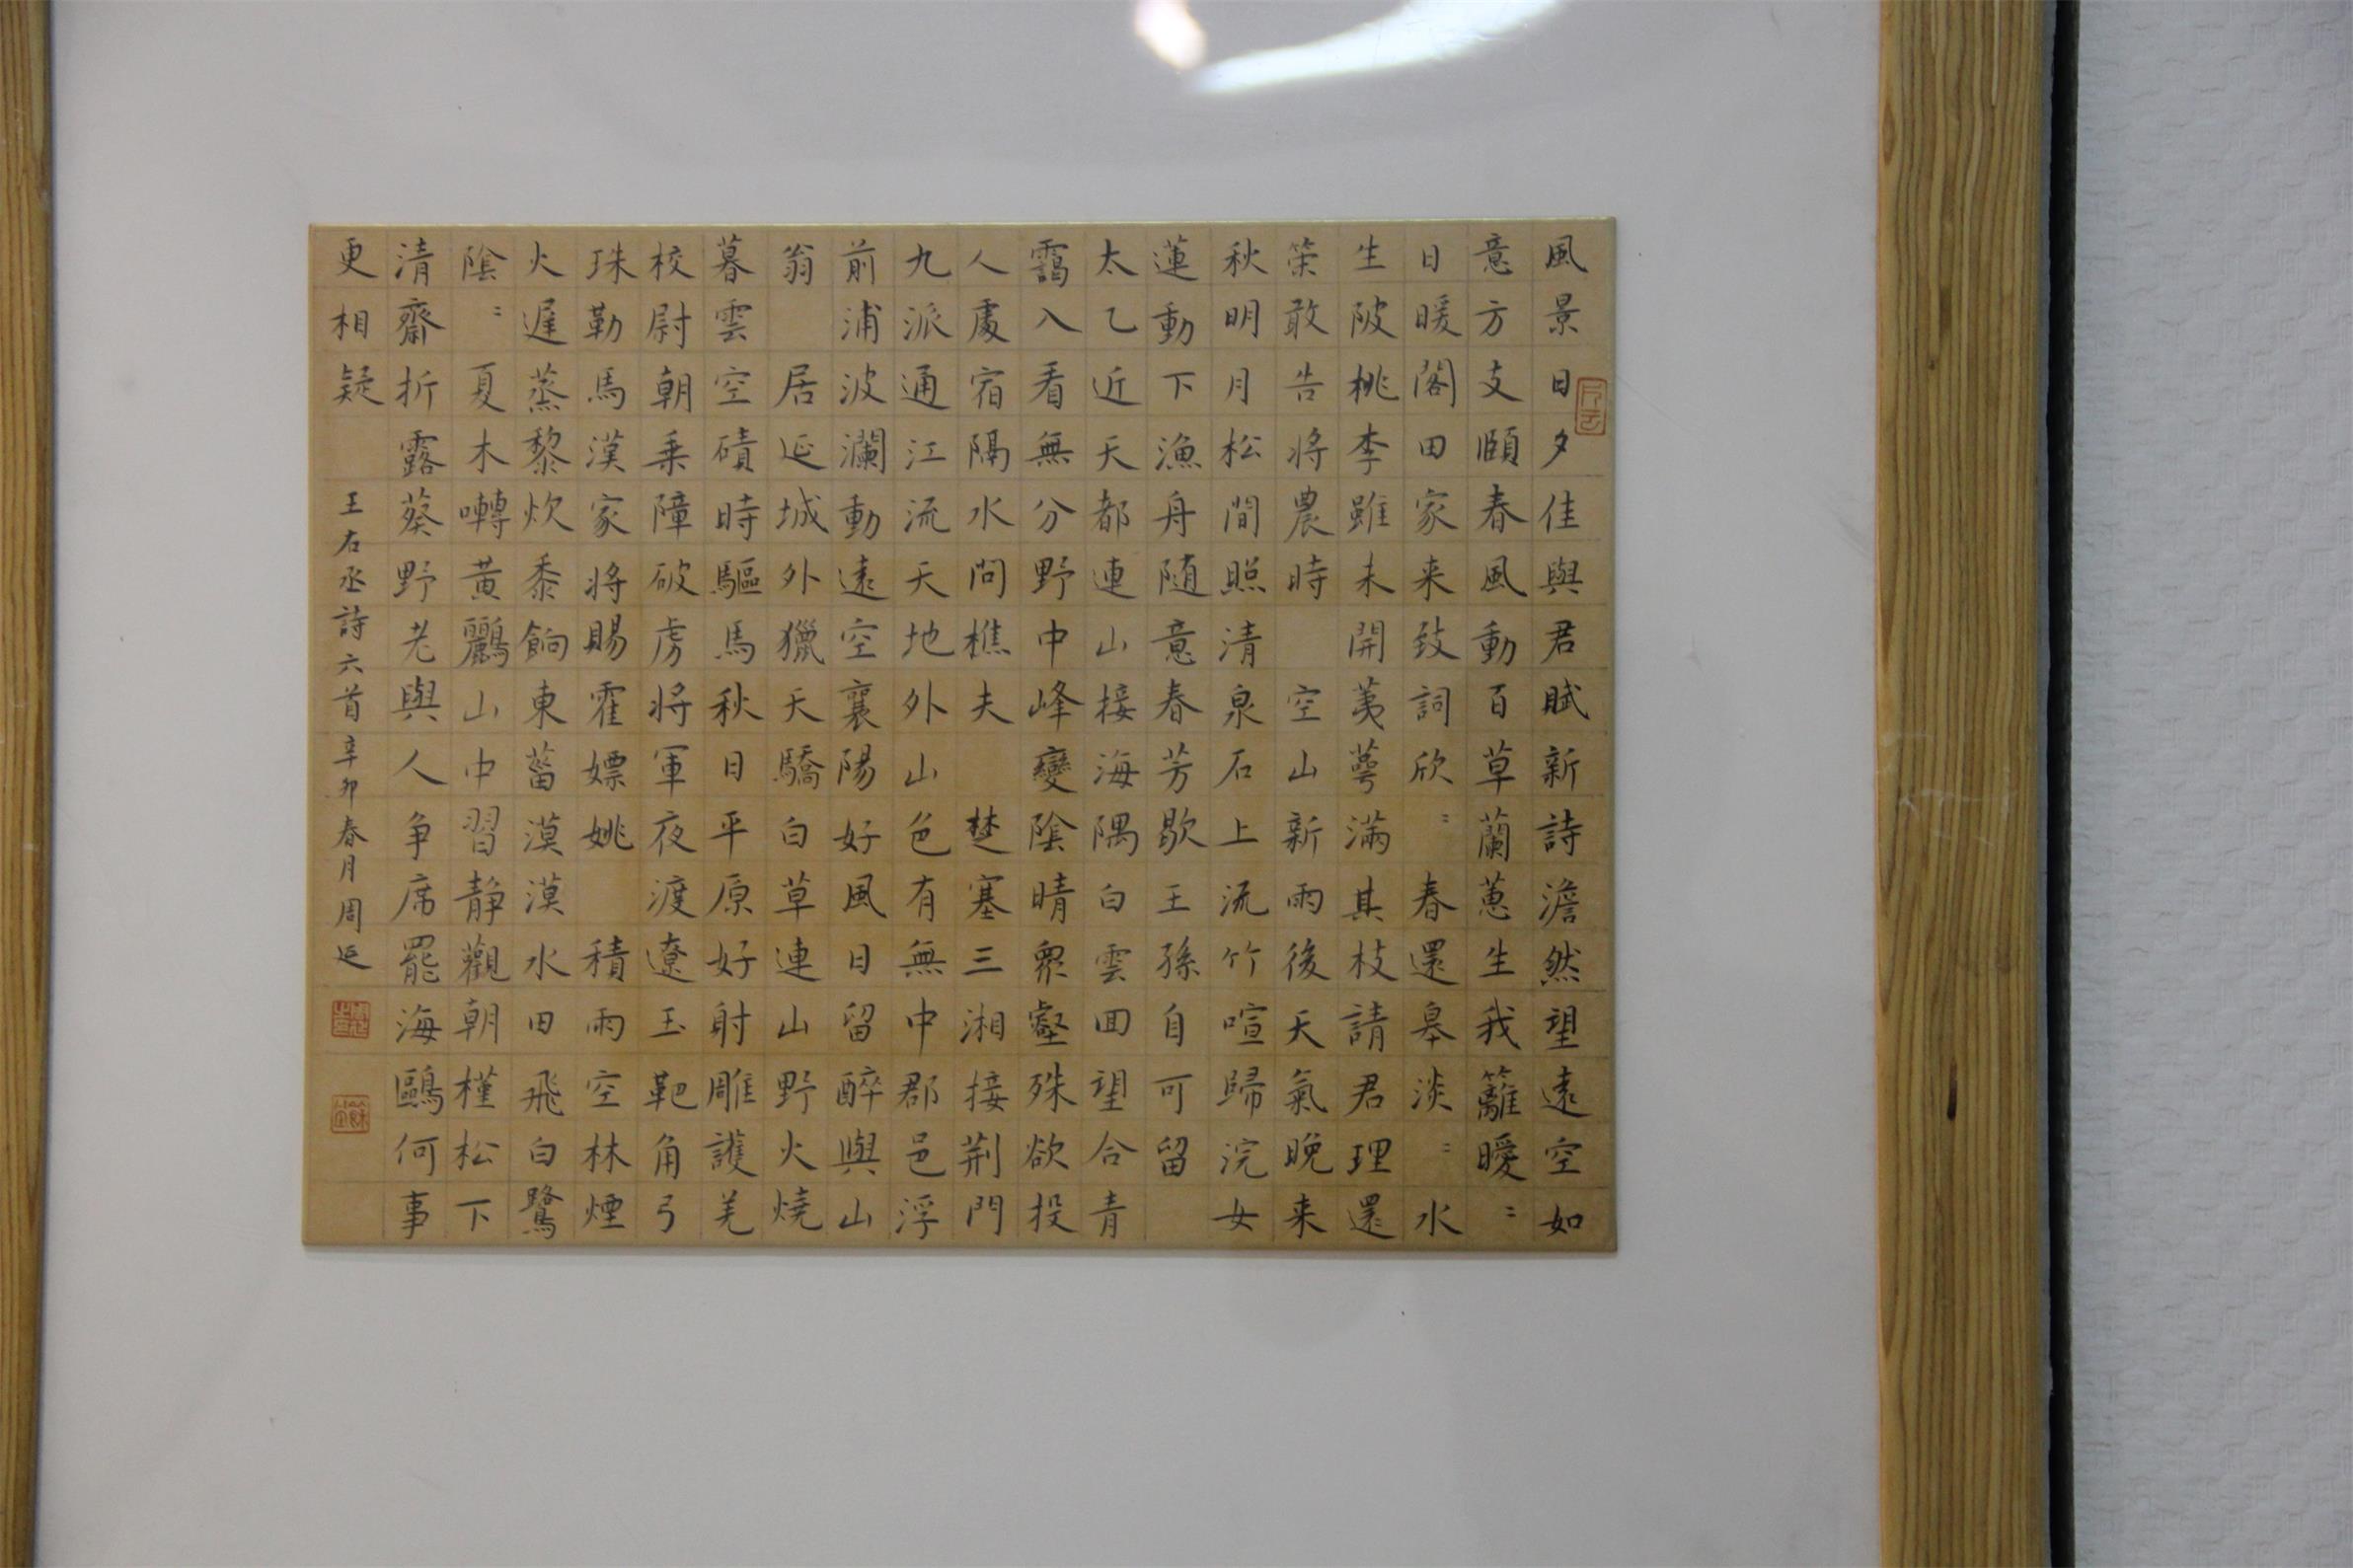 風景日夕佳與君賦新詩澹然望遠空如
意方支頤春風動百草蘭蕙生我籬曖〻
日暖閣田家来致詞欣〻春還皋淡〻水
生陂桃李雖未開荑萼滿其枝請君理還
策敢告将農時 空山新雨後天氣晚来
秋明月松間照清泉石上流竹喧歸浣女
蓮動下漁舟随意春芳歇王孫自可留
太乙近天都連山接海隅白雲回望合青
靄入看無分野中峰變陰晴衆壑殊欲投
人處宿隔水問樵夫 楚塞三湘接荆門
九派通江流天地外山色有無中郡邑浮
前浦波瀾動遠空襄陽好風日留醉與山
翁 居延城外獵天驕白草連山野火燒
暮雲空磧時驅馬秋日平原好射雕護羌
校尉朝乗障破虜将軍夜渡遼玉靶角弓
珠勒馬漢家将賜霍嫖姚 積雨空林煙
火遲蒸藜炊黍餉東菑漠漠水田飛白鷺
陰〻夏木囀黃鸝山中習静觀朝槿松下
清齋折露葵野老與人争席罷海鷗何事
更相疑 王右丞詩六首辛卯春月周延